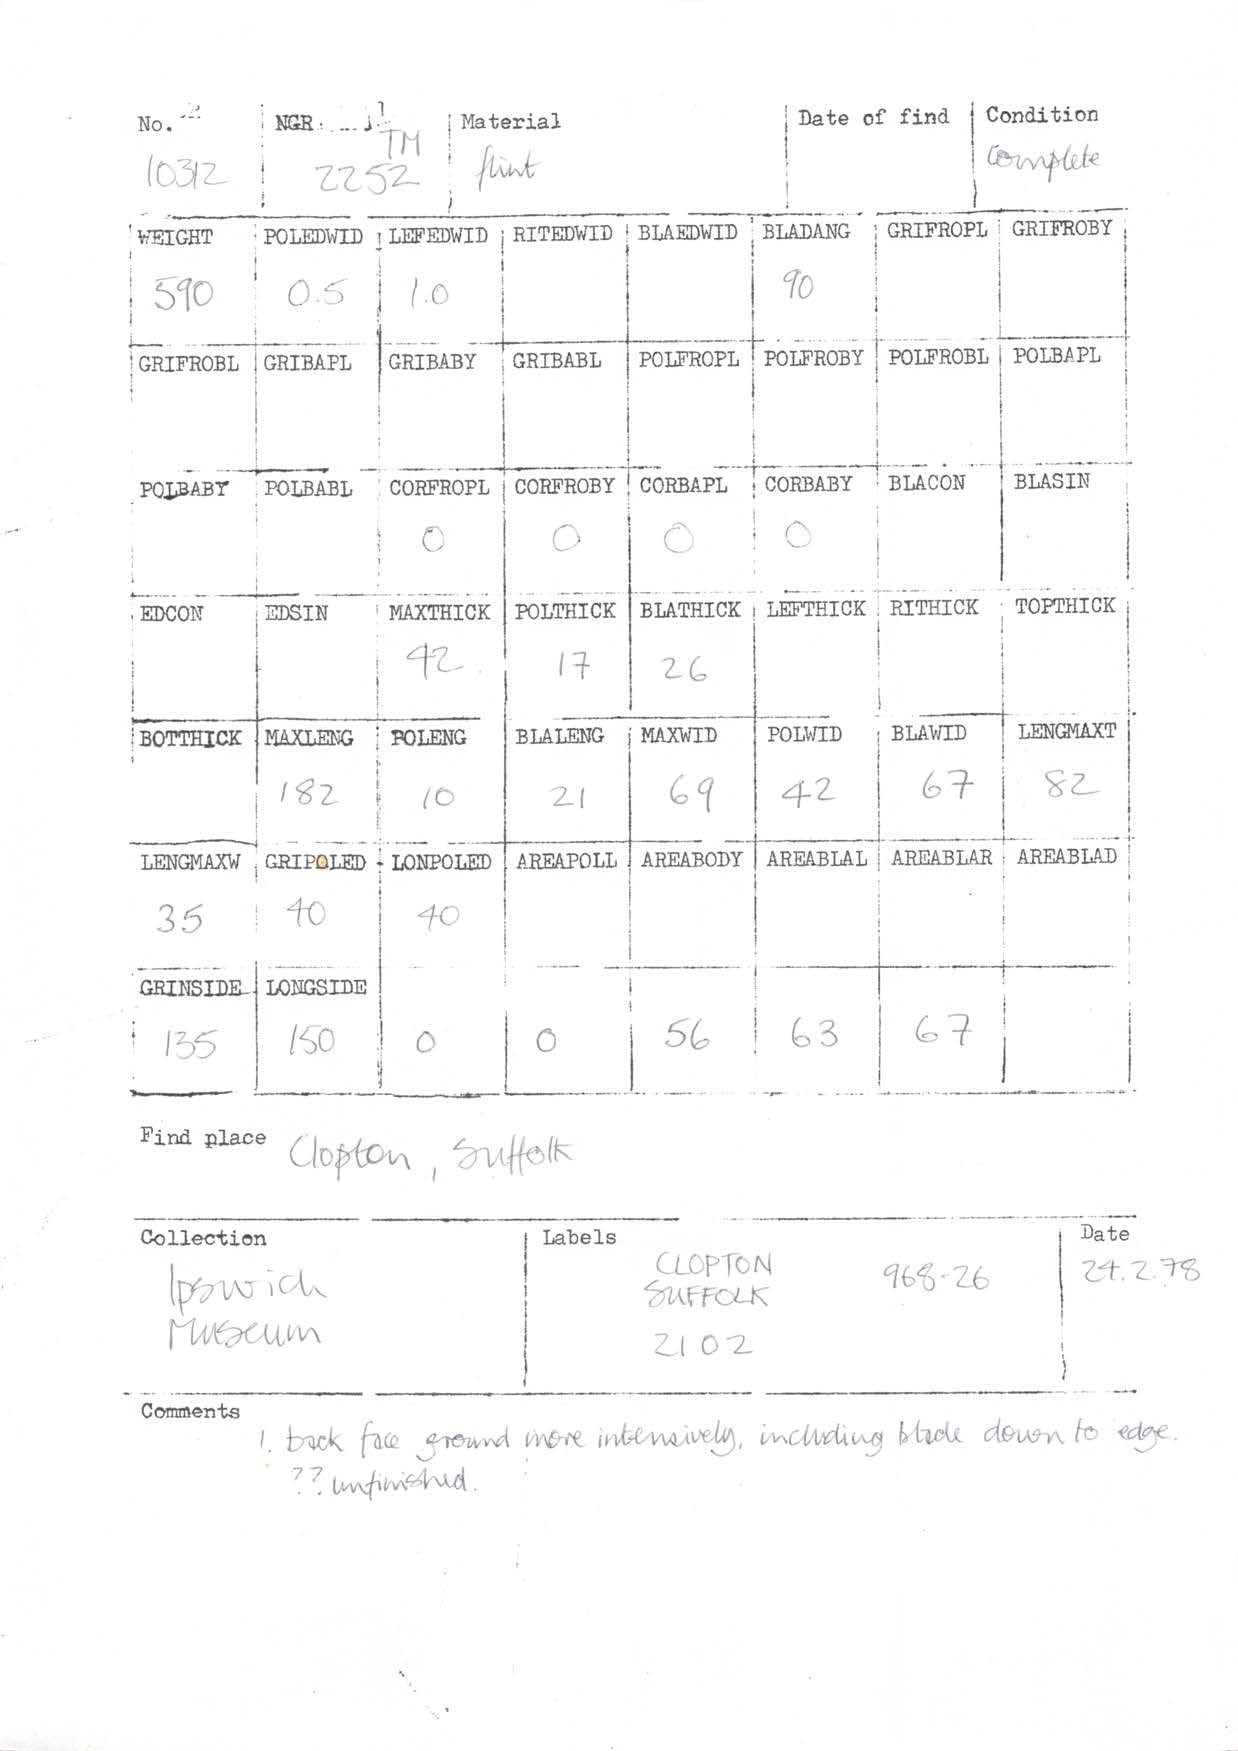 No. NGR Material Date of find Condition
10312 TM 2252 flint Complete
WEIGHT POLEDWID LEFEDWID RITEDWID BLAEDWID BLADANG GRIFROPL GRIFROBY
590 0.5 1.0 90
GRIFROBL GRIBAPL GRIBABY GRIBABL POLFROPL POLFROBY POLFROBL POLBAPL
POLBABY POLBABL CORFROPL CORFROBY CORBAPL CORBABY BLACON BLASIN
0 0 0 0
EDCON EDSIN MAXTHICK POLTHICK BLATHICK LEFTHICK RITHICK TOPTHICK
42 17 26
BOTTHICK MAXLENG POLENG BLALENG MAXWID POLWID BLAWID LENGMAXT
182 10 21 69 42 67 82
LENGMAXW GRIPOLED LONPOLED AREAPOLL AREABODY AREABLAL AREABLAR AREABLAD
35 40 40
GRINSIDE LONGSIDE
135 150 0 0 56 63 67
Find place Clopton, Suffolk
Collection Labels Date
Ipswich CLOPTON 968-26 24.2.78
Museum SUFFOLK
2102
Comments
1. back face ground more intensively, including blade down to edge.
?? unfinished.